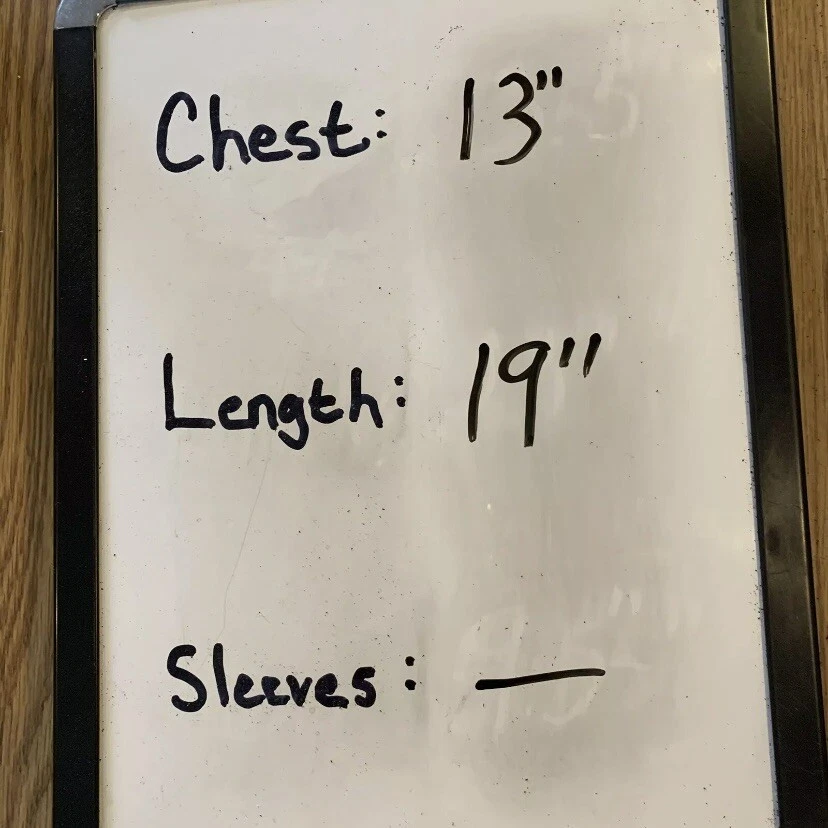 Chest: 13"
Length: 19"
Sleeves: —